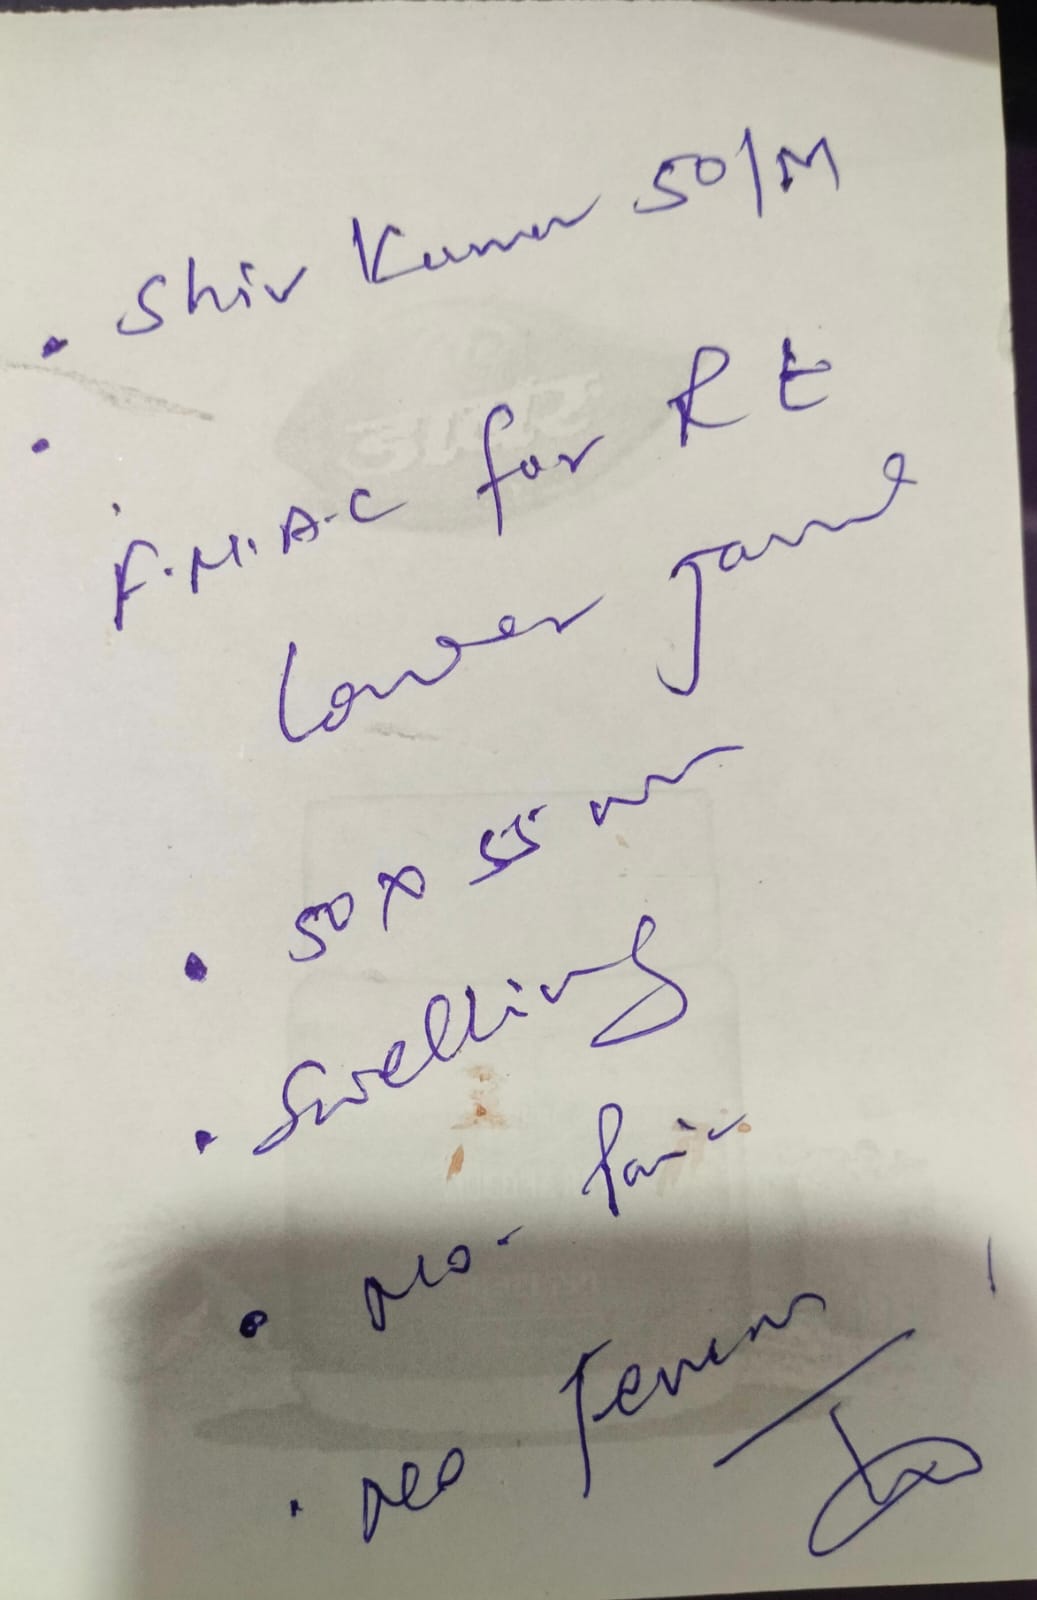 • Shiv Kumar 50/M
• F.N.A.C for Rt
Lower Jaw
• 50 X 55 mm
• Swelling
• No- Pain
• No Fever
डाबर